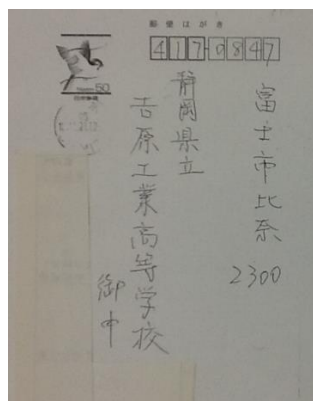 郵便はがき
417-0847
NIPPON 50
富士市比奈
2300
静岡県立
吉原工業高等学校
御中